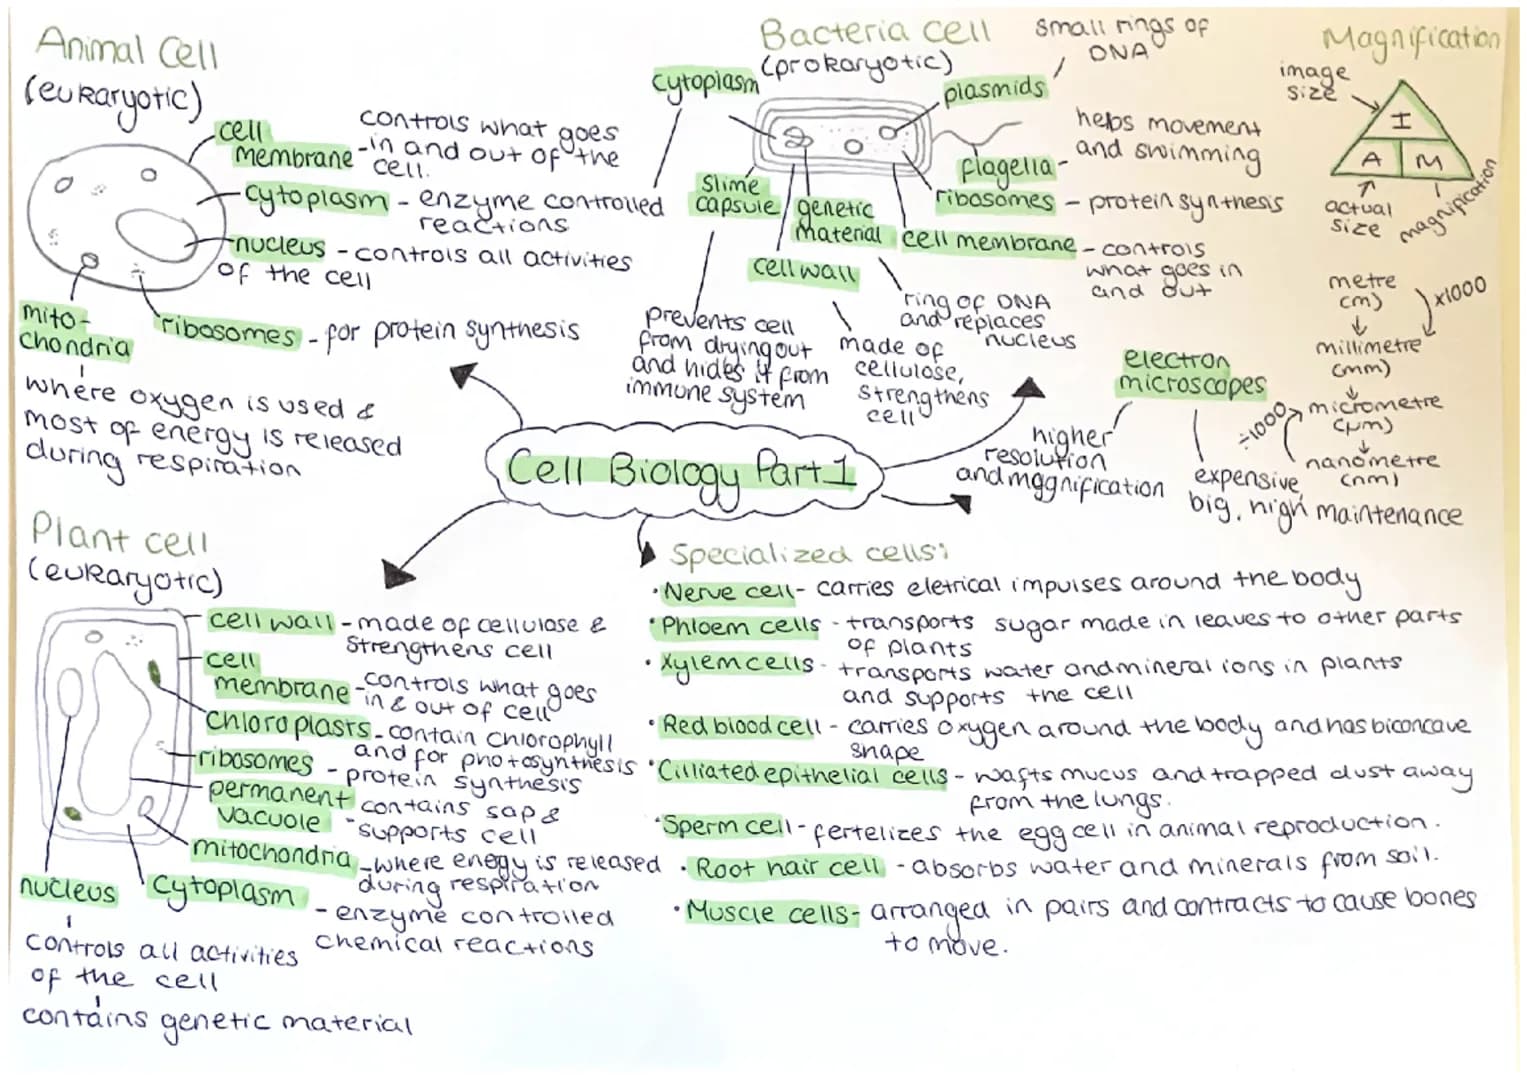 Animal Cell
(eukaryotic)
cell
membrane - controls what goes
in and out of the
cell.
cytoplasm - enzyme controlled
reactions
nucleus - controls all activities
of the cell
mito-
chondria
ribosomes - for protein synthesis
where oxygen is used &
most of energy is released
during respiration
Bacteria cell
(prokaryotic)
small rings of
DNA
cytoplasm
plasmids
helps movement
and swimming
flagella -
slime
capsule
genetic
material
ribosomes - protein synthesis
cell membrane - controls
what goes in
and out
cell wall
prevents cell
from drying out
and hides it from
immune system
ring of DNA
and replaces
nucleus
made of
cellulose,
strengthens
cell
Magnification
image
size
I
A M
actual
size
magnification
metre
cm)
x1000
millimetre
(mm)
micrometre
(µm)
÷1000
nanometre
(nm)
electron
microscopes
higher
resolution
and mggnification
expensive,
big, high maintenance
Cell Biology Part 1
Plant cell
(eukaryotic)
cell wall - made of cellulose &
strengthens cell
cell
membrane - controls what goes
in & out of cell
chloroplasts - contain chlorophyll
and for photosynthesis
ribosomes - protein synthesis
permanent
vacuole - contains sap &
supports cell
mitochondria - where enegy is released
during respiration
nucleus
cytoplasm
- enzyme controlled
chemical reactions
controls all activities
of the cell
contains genetic material
Specialized cells:
• Nerve cell - carries eletrical impulses around the body
• Phloem cells - transports sugar made in leaves to other parts
of plants
• Xylem cells - transports water and mineral ions in plants
and supports the cell
• Red blood cell - carries oxygen around the body and has biconcave
shape
• Cilliated epithelial cells - wafts mucus and trapped dust away
from the lungs.
• Sperm cell - fertelizes the egg cell in animal reproduction.
• Root hair cell - absorbs water and minerals from soil.
• Muscle cells - arranged in pairs and contracts to cause bones
to move.